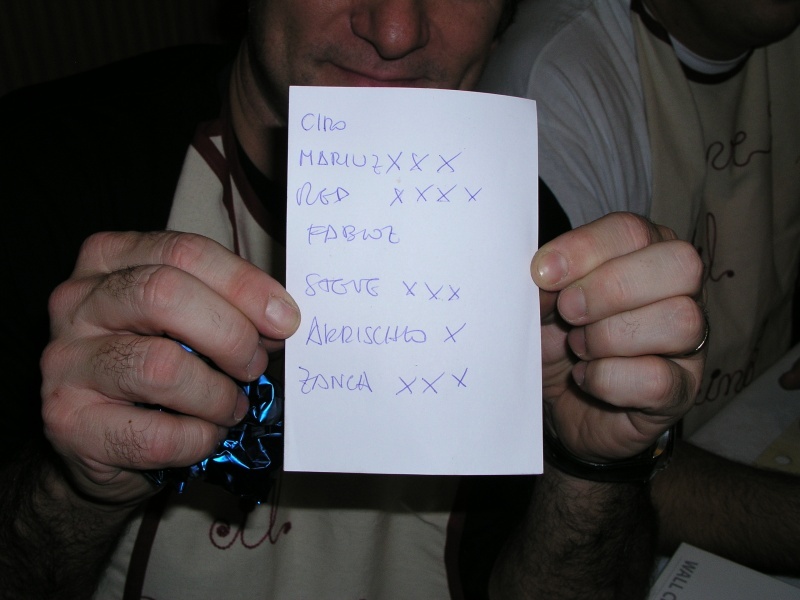 CIRO
MARIUZ X X X
RED X X X X
FABIOZ
STEVE X X X
ARRISCHIO X
ZANCA X X X
WALL C